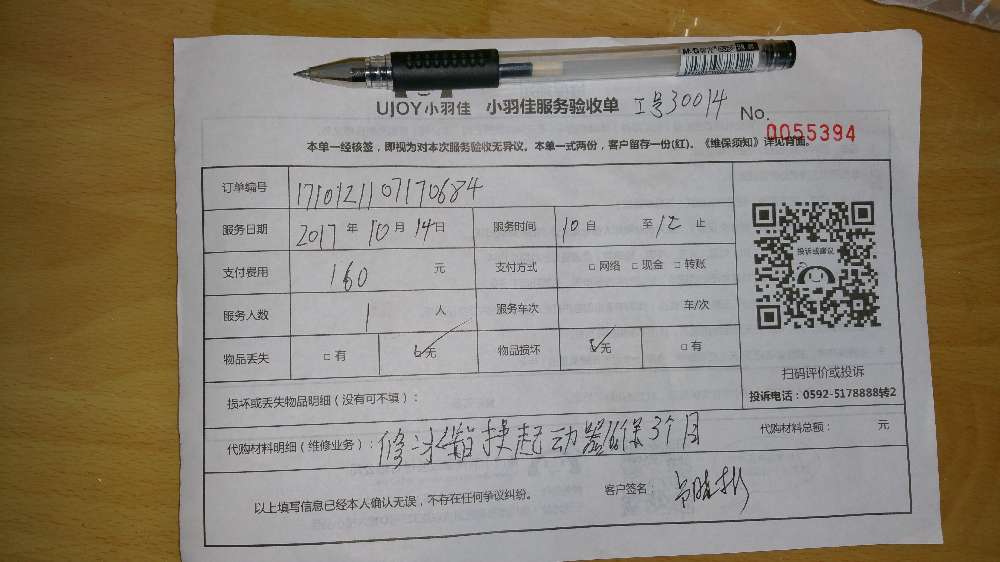 M&G
UJOY小羽佳 小羽佳服务验收单 工号30014 No. 0055394
本单一经核签，即视为对本次服务验收无异议。本单一式两份，客户留存一份(红)。《维保须知》详见背面。
订单编号 171012110717068​4
服务日期 2017年10月14日 服务时间 10自 至12止
支付费用 160 元 支付方式 □网络 □现金 □转账
服务人数 1 人 服务车次 车/次
物品丢失 □有 ☑无 物品损坏 ☑无 □有
投诉或建议
扫码评价或投诉
投诉电话：0592-5178888转2
损坏或丢失物品明细（没有可不填）：
代购材料明细（维修业务）：修冰箱换起动器保3个月 代购材料总额： 元
以上填写信息已经本人确认无误，不存在任何争议纠纷。 客户签名：